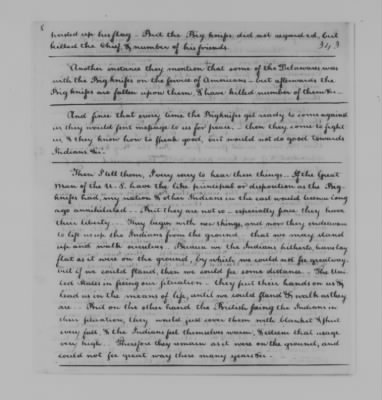 hoisted up his flag - But the Big knifes did not regard ed, but
killed the Chief, & number of his friends.
343
Another instance they mention that some of the Delawares was
with the Big knifes on the service of Americans - but afterwards the
Big knifes are fallen upon them, & have killed number of them &c.
And since that every time the Bigknifes get ready to come against
us they would sent message to us for peace - then they come to fight
us & they know how to speak good, but would not do good towards
Indians &c.
Then I tell them, I very sorry to hear these things - If the Great
Man of the U. S. have the like principal or disposition as the Big
knifes had, my nation & other Indians in the east would been long
ago annihilated - But they are not so - especially since they have
their liberty - They begin with new things, and now they endeavour
to lift us up the Indians from the ground, that we may stand
up and walk ourselves - Because we the Indians hitherto have lay
flat as it were on the ground, by which we could not see great way,
but if we could stand, then we could see some distance. The Uni-
ted States in seeing our situation - they put their hands on us &
lead us in the means of life, until we could stand & walk as they
are - But on the other hand the British seeing the Indians in
their situation, they would just cover them with blanket & shirt
every fall, & the Indians feel themselves warm, & esteem that usage
very high - Therefore they remain as it were on the ground, and
could not see great way these many years &c.